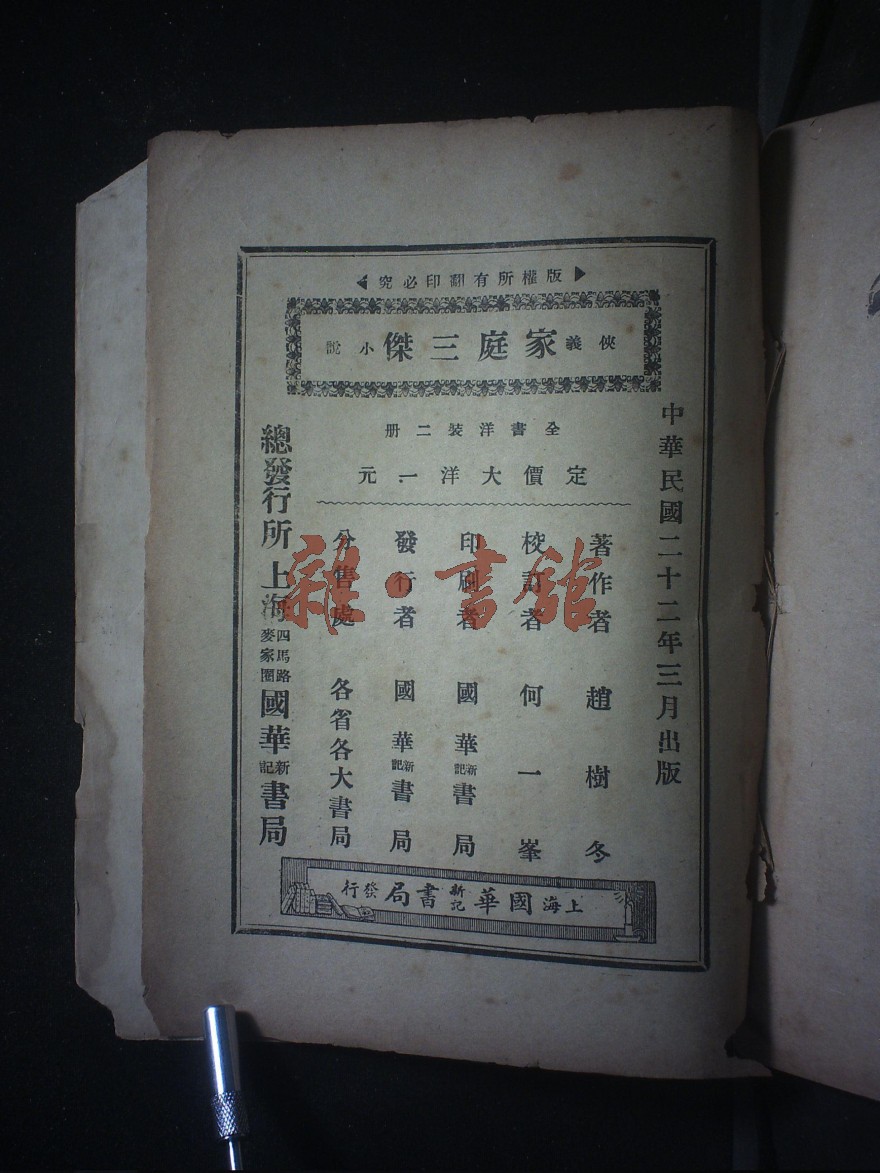 版權所有翻印必究
俠義家庭三傑小說
中華民國二十二年三月出版
全書洋裝二册
定價大洋一元
著作者 趙樹冬
校訂者 何一峯
印刷者 國華新記書局
發行者 國華新記書局
分售處 各省各大書局
總發行所 上海四馬路麥家圈國華新記書局
上海國華新記書局發行
雜·書館